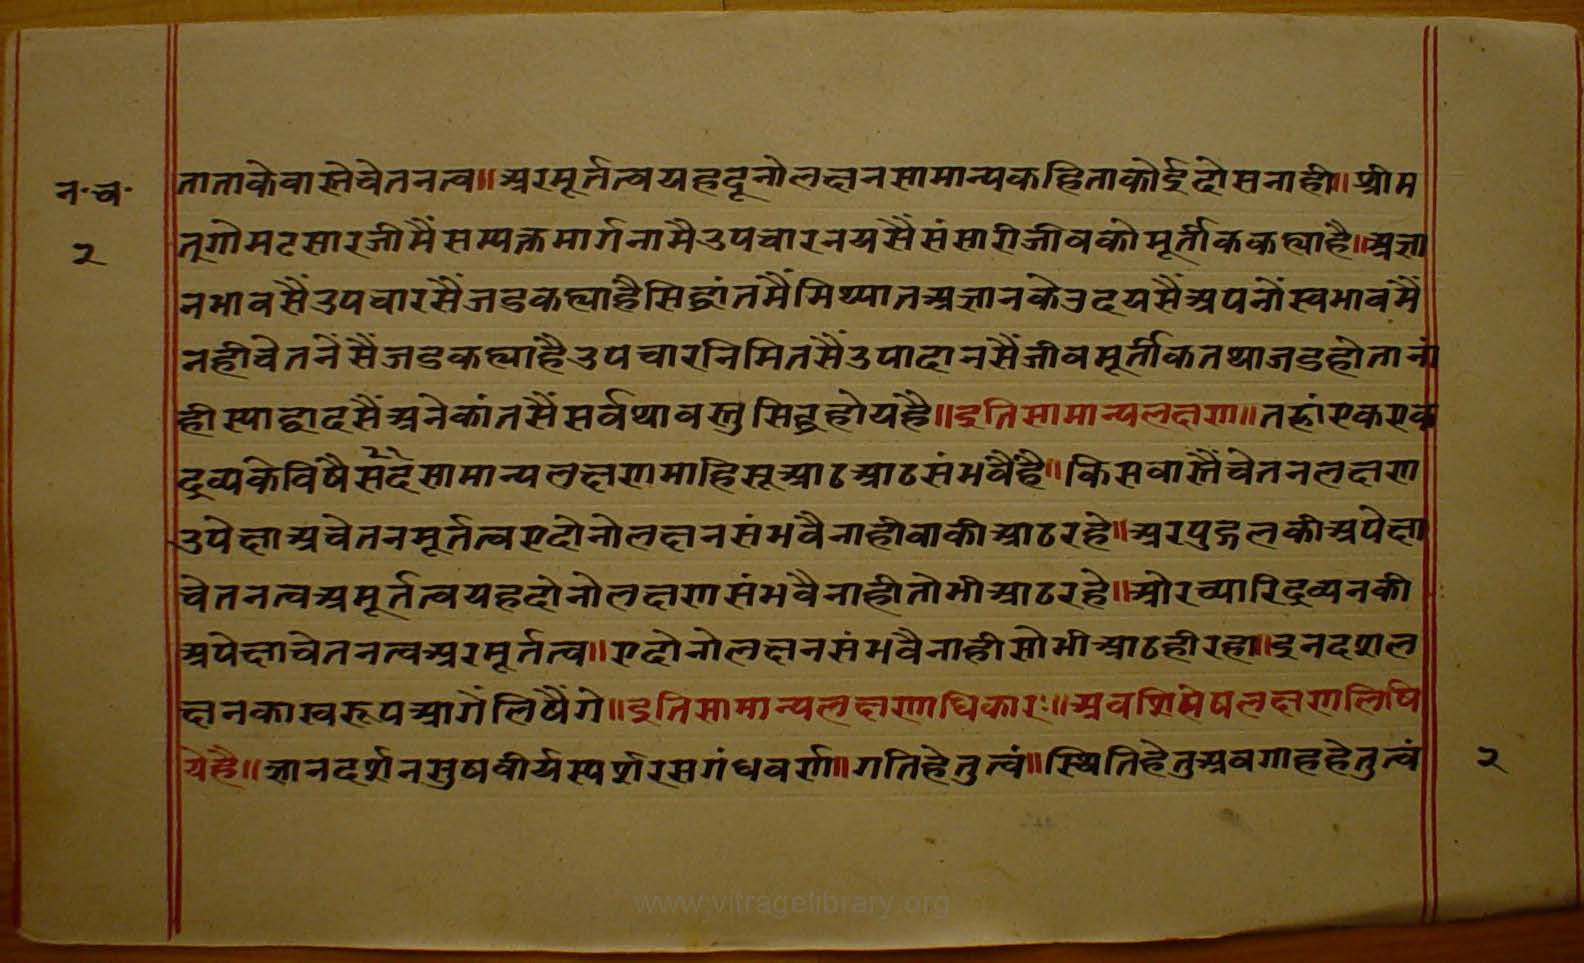 न॰च॰
२
ताताकेवास्तेचेतनत्व॥अरमूर्तत्वयहदूनोलक्षनसामान्यकहिताकोईदोसनाही॥श्रीम
त्गोमटसारजीमैंसम्यक्तमार्गनामैउपचारनयसैंसंसारीजीवकोमूर्तीककह्याहै॥अज्ञा
नभावसैंउपचारसैंजडकह्याहैसिद्धांतमैंमिथ्यातअज्ञानकेउदयसैंअपनोंस्वभावमैं
नहीचेतनेंसैंजडकह्याहैउपचारनिमितसैंउपादानसैंजीवमूर्तीकतथाजडहोतानां
हीस्याद्वादसैंअनेकांतसैंसर्वथावस्तुसिद्धहोयहै॥इतिसामान्यलक्षण॥तहांएकएक
द्रव्यकेविषैसेदैसामान्यलक्षणमाहिसूआठआठसंभवैंहै॥किसवास्तैंचेतनलक्षण
उपेक्षाअचेतनमूर्तत्वएदोनोलक्षनसंभवैनाहीवाकीआठरहे॥अरपुद्गलकीअपेक्षा
चेतनत्वअमूर्तत्वयहदोनोलक्षणसंभवैनाहीतोभीआठरहे॥ओरच्यारिद्रव्यनकी
अपेक्षाचेतनत्वअरमूर्तत्व॥एदोनोलक्षनसंभवैनाहीसोभीआठहीरहा॥इनदशल
क्षनकास्वरूपआगेंलिषैंगे॥इतिसामान्यलक्षणाधिकारः॥अवशिसेषलक्षणलिषि
येहै॥ज्ञानदर्शनसुषवीर्यस्पर्शरसगंधवर्ण॥गतिहेतुत्वं॥स्थितिहेतुअवगाहहेतुत्वं
२
www.vitragelibrary.org